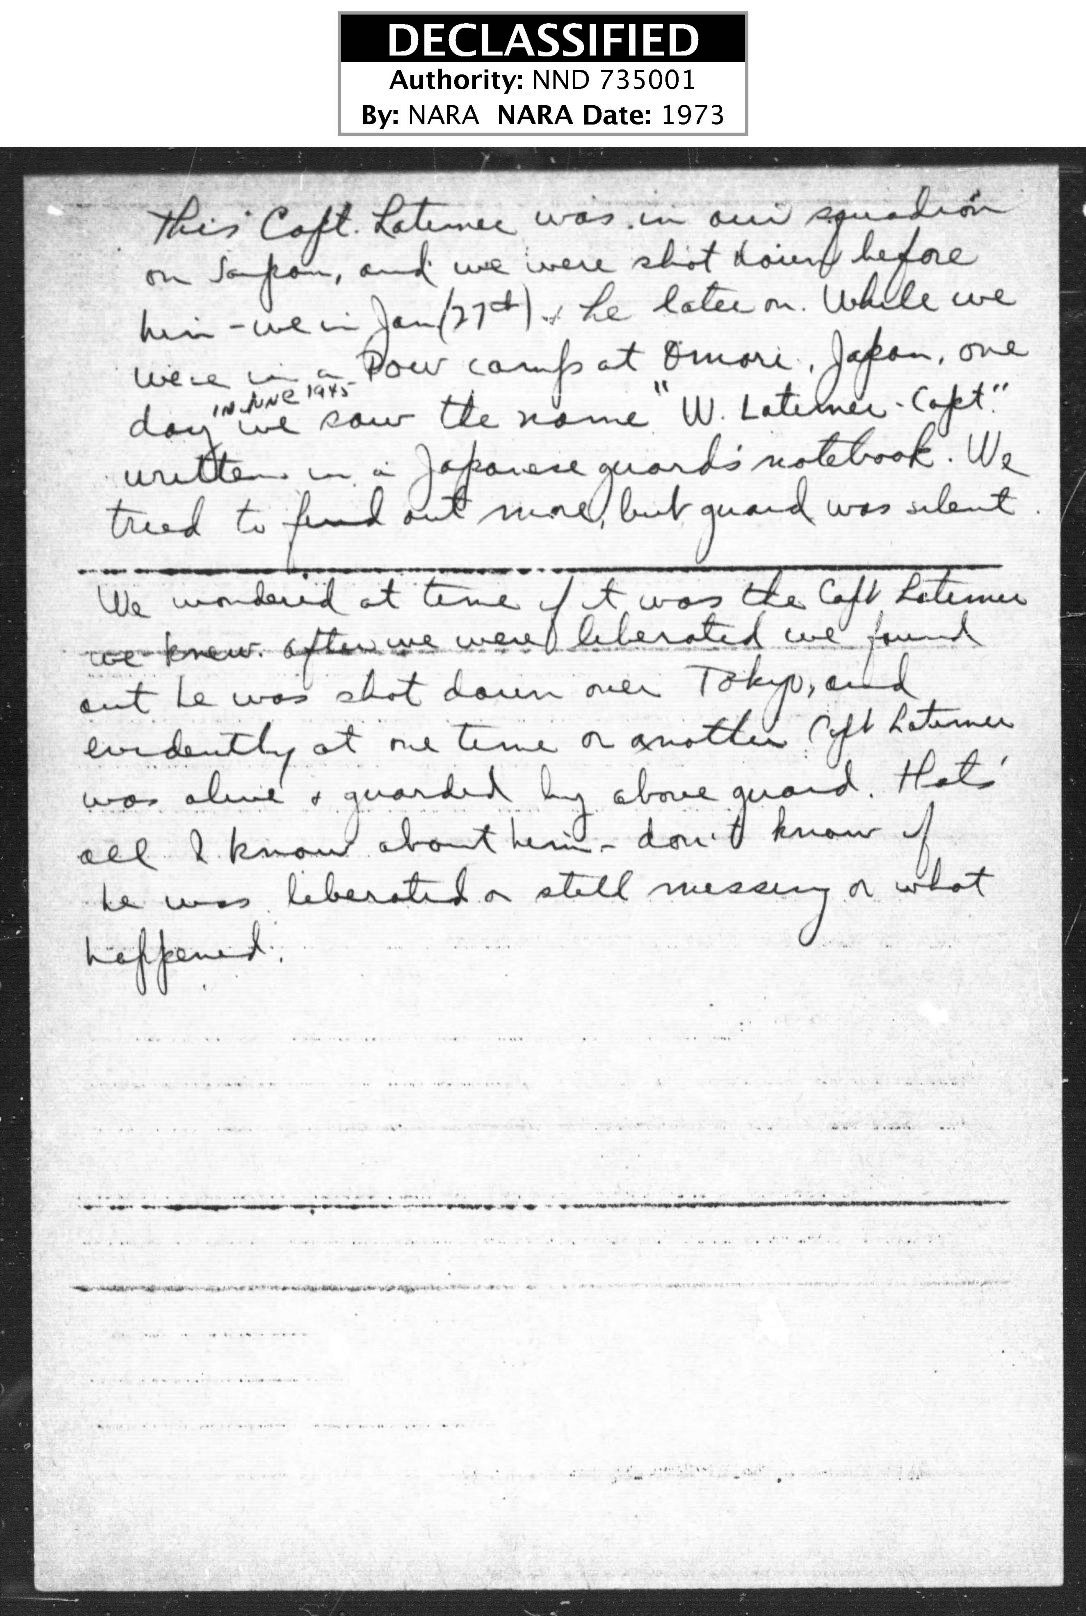 DECLASSIFIED
Authority: NND 735001
By: NARA NARA Date: 1973
This Capt. Latimer was in our squadron
on Saipan, and we were shot down before
him - we in Jan (27th) & he later on. While we
were in a POW camp at Omori, Japan, one
day IN JUNE 1945 we saw the name "W. Latimer - Capt."
written in a Japanese guard's notebook. We
tried to find out more, but guard was silent.
We wondered at time if it was the Capt Latimer
we knew. After we were liberated we found
out he was shot down over Tokyo, and
evidently at one time or another Capt Latimer
was alive & guarded by above guard. That's
all I know about him - don't know if
he was liberated or still missing or what
happened.